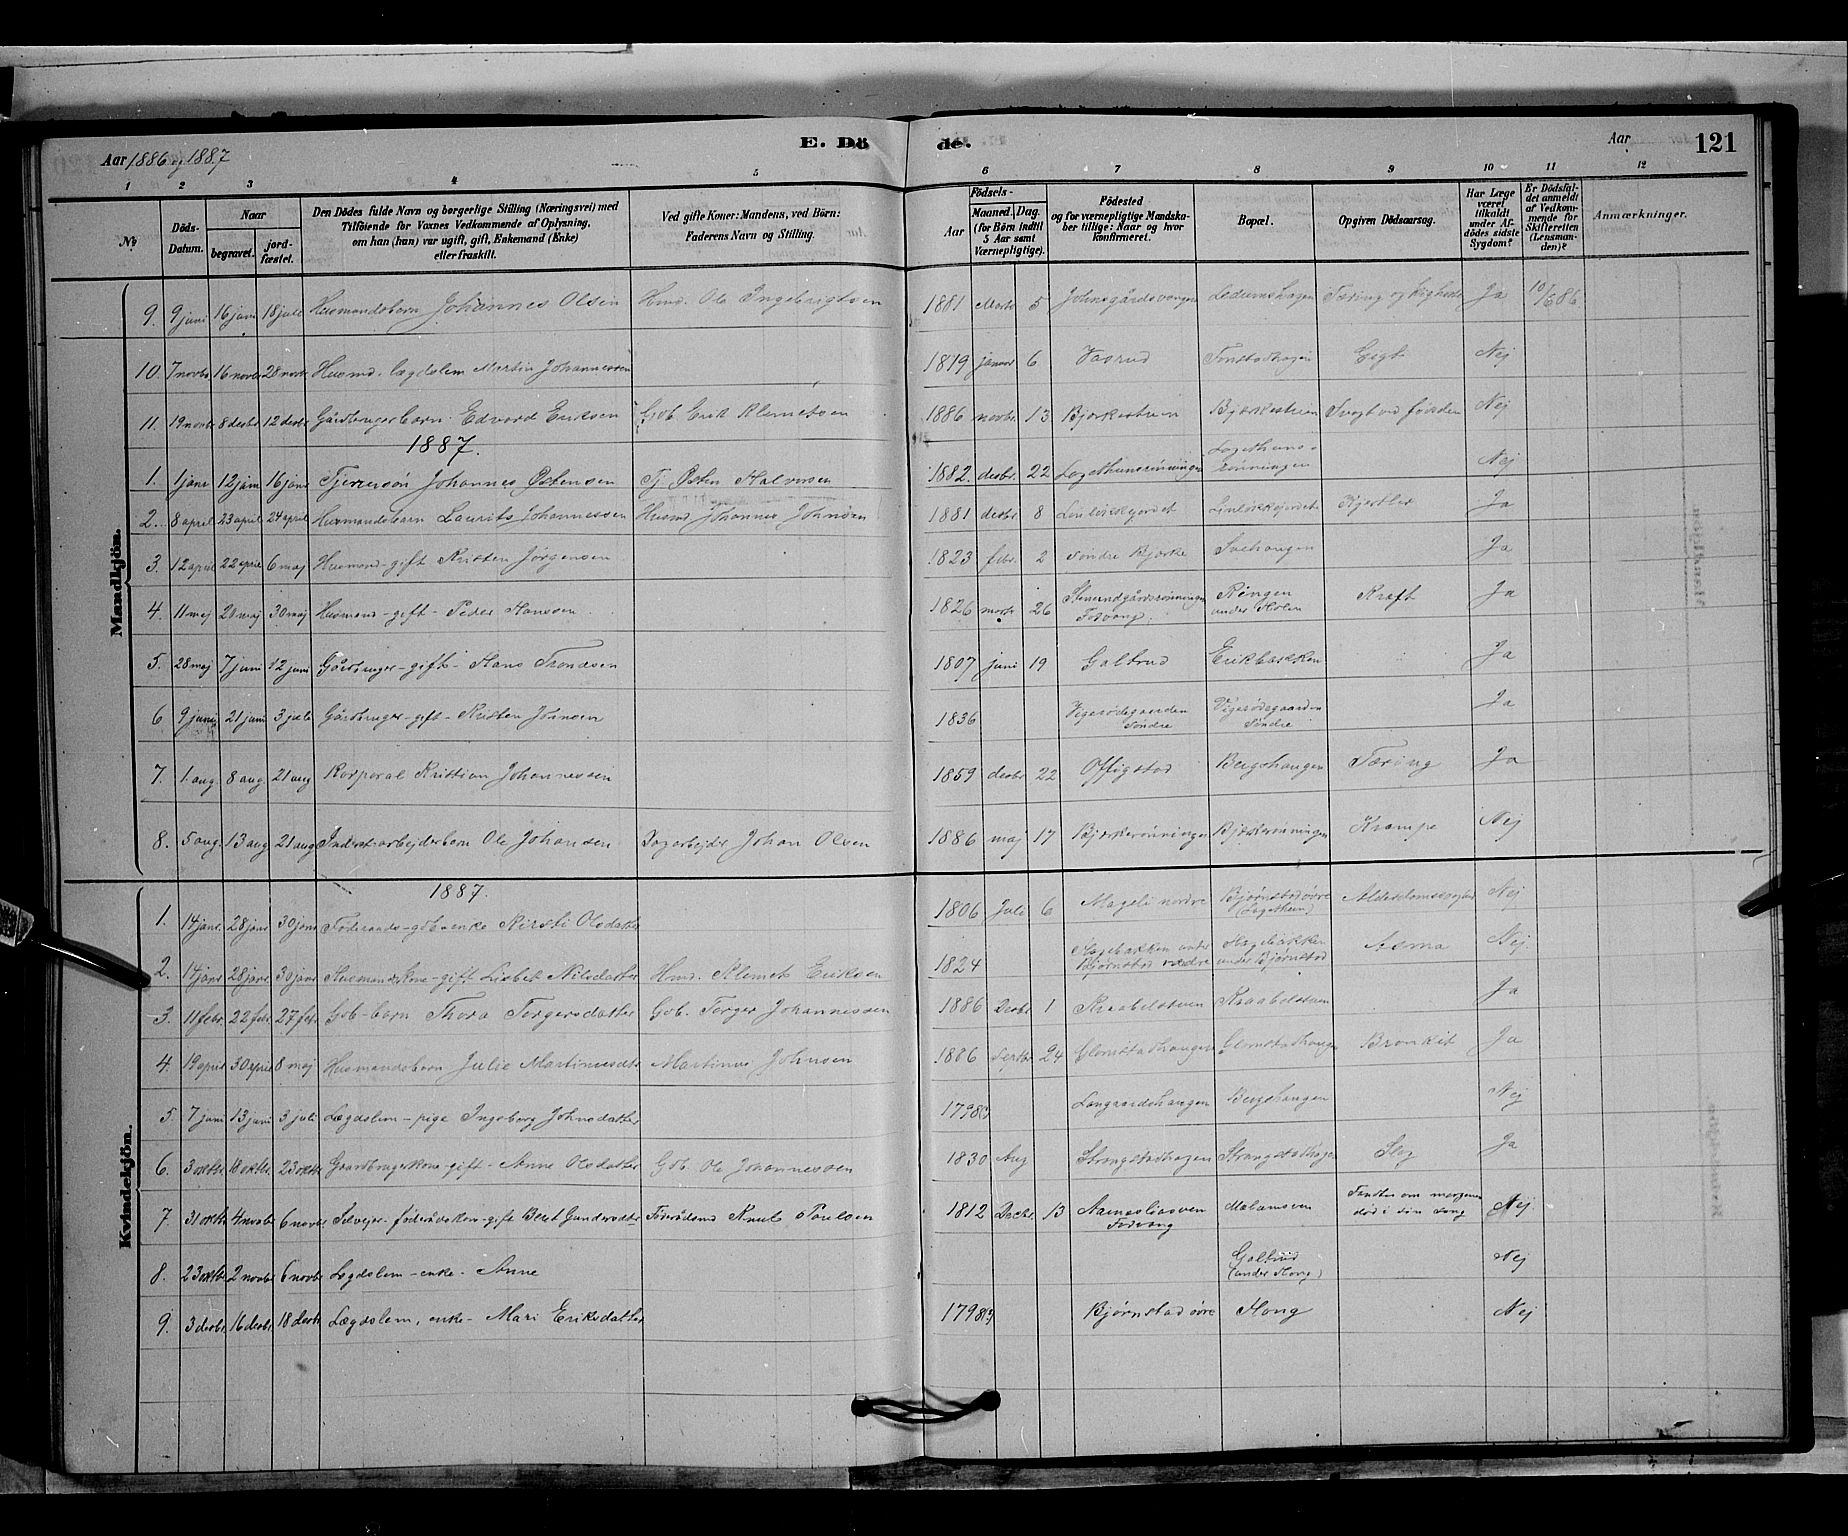 Aar 1886 og 1887 E. Döde. Aar 121
1 2 3 4 5 6 7 8 9 10 11 12
No
Döds-Datum.
Naar
begravet.
jord-fæstet.
Den Dödes fulde Navn og borgerlige Stilling (Næringsvei) med
Tilföiende for Voxnes Vedkommende af Oplysning,
om han (hun) var ugift, gift, Enkemand (Enke)
eller fraskilt.
Ved gifte Koner: Mandens, ved Börn:
Faderens Navn og Stilling.
Födsels-
Aar
Maaned. Dag.
(for Börn indtil
5 Aar samt
Værnepligtige).
Födested
og for værnepligtige Mandska-
ber tillige: Naar og hvor
konfirmeret.
Bopæl.
Opgiven Dödsaarsag.
Har Læge
været
tilkaldt
under Af-
dödes sidste
Sygdom?
Er Dödsfal-
det anmeldt
af Vedkom-
mende for
Skifteretten
(Lensman-
den)?
Anmærkninger.
Mandkjön.
9. 9 juni 16 juni 18 juli Husmandsbarn Johannes Olsen Hmd. Ole Ingebrigtsen 1881 Marts 5 Johnsgårdsvangen Ledumshagen Tæring og kighoste Ja 10/6 86.
10. 7 novbr 16 novbr 28 novbr Husmd. lægdslem Martin Johannessen 1819 januar 6 Vasrud Tonstadhagen Gigt Nej
11. 19 novbr 8 desbr 12 desbr Gårdbruger barn Edvard Eriksen Gdb Erik Klemetsen 1886 novbr. 13 Bjørkestuen Bjørkestuen Svag ved fødselen Nej
1887.
1. 1 janr 12 janr 16 janr Tjenersøn Johannes Østensen Tj. Østen Halvorsen 1882. desbr. 22 Løgethunsrønningen Løgethuns-rønningen Nej
2. 8 april 23 april 24 april Husmandsbarn Laurits Johannessen Husmd Johannes Johnsen 1881 desbr 8 Linløkkejordet Linløkkejordet Kjertler Ja
3. 12 april 22 april 6 maj Husmand-gift Kristen Jørgensen 1823 febr. 2 Søndre Bjørke Svehaugen Ja
4. 11 maj 20 maj 30 maj Husmand-gift-Peder Hansen 1826 marts 26 Stenerudgårdsrønningen Fodvang. Ringen under Holen Kræft Ja
5. 28 maj 7 juni 12 juni Gårdbruger-gift-Hans Trondsen 1807 juni 19 Galtrud Erikbakken Ja
6. 9 juni 21 juni 3 juli Gårdbruger-gift-Kristen Johnsen 1836 Vigesødegaarden søndre Vigesødegaarden søndre Ja
7. 1. aug. 8 aug 21 aug Korporal Kristian Johannessen 1859 desbr 22 Offigstad Bergshaugen Tæring Ja
8. 5 aug. 13 aug 21 aug Inderst arbejderbarn Ole Johansen Dagarbejder Johan Olsen 1886 maj 17 Bjørkerønningen Bjørkerønningen Krampe Nej
Kvindekjön.
1887.
1. 14 janr. 28 janr 30 janr Føderaads-gdb enke Kirsti Olsdatter 1806 Juli 6 Mageli nordre Bjørnstad øvre Alderdomssvaghed Nej
2. 14 janr 28 janr 30 janr Husmandskone-gift Lisbet Nilsdatter Hmd. Klemet Eriksen 1824 Hagebakken under Bjørnstad nedre Hagebakken under Bjørnstad Asma Nej.
3. 11 febr. 22 febr 27 febr Gdb-barn Thora Torgersdatter Gdb. Torger Johannessen 1886 Desbr 1 Kraabelstuen Kraabelstuen Ja
4. 19 april 30 april 8 maj Husmandsbarn Julie Martinusdtr Martinus Johnsen 1886 Septbr 24 Glomstadhaugen Glomstadhaugen Bronkit Ja
5. 7 juni 13 juni 3 juli Lægdslem-pige Ingeborg Johnsdatter 1798(?) Langaardshaugen Bergshaugen Nej
6. 3 oktbr. 18 oktbr. 23 oktbr Gaardbrugerkone-gift-Anne Olsdatter Gdb. Ole Johannessen 1830 Aug Strangstadhagen Strangstadhagen Slag Ja
7. 31 oktbr 4 novbr 6 novbr Selvejer-føderådskone-gift Berit Gundersdtr Føderådsmd Knut Poulsen 1812 Decbr. 13 Aamodslisveen Fodvang Mehamsven Fandtes om morgenen død i sin seng Nej.
8. 23 oktbr 2 novbr 6 novbr Lægdslem-enke-Anne Galtrud (under Haug) Nej
9. 3 desbr. 16 desbr. 18 desbr Lægdslem, enke-Mari Eriksdatter 1798(?) Bjørnstad øvre Haug Nej